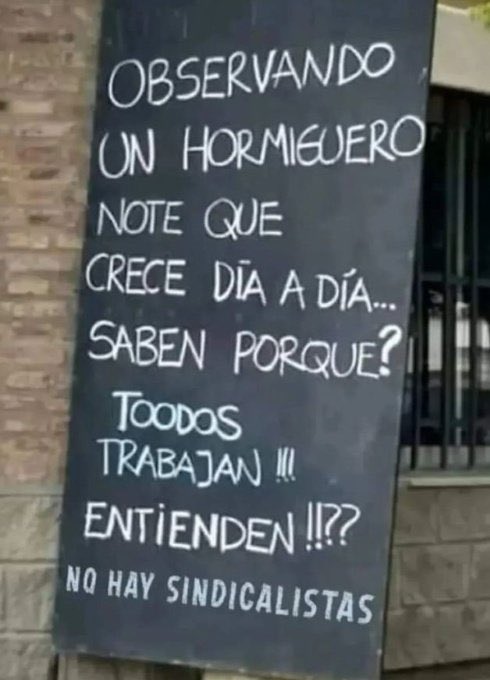 OBSERVANDO
UN HORMIGUERO
NOTE QUE
CRECE DÍA A DÍA...
SABEN PORQUE?
TOODOS
TRABAJAN !!!
ENTIENDEN !!??
NO HAY SINDICALISTAS